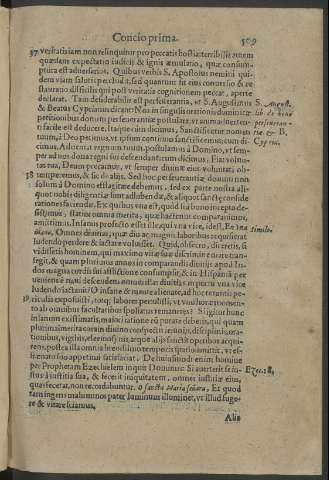 Concio prima. 509
37. veritatis iam non relinquitur pro peccatis hostia: terribilis autem
quædam expectatio iudicij & ignis æmulatio, quæ consum-
ptura est aduersarios. Quibus verbis S. Apostolus nemini qui-
dem viam salutis percludit, sed quantum sit eius conuersio & re-
stauratio difficilis qui post veritatis cognitionem peccat, aperte
declarat. Tam desiderabilis est perseuerantia, vt S. Augustinus
& Beatus Cyprianus dicant: Nos in singulis orationis dominicæ
petitionibus donum perseuerantiæ postulare, vt in
ti facile est deducere. Itaque cùm dicimus, Sanctificetur nomen
tuum, à Deo petimus, vt ipsum continuò sanctificemus; cum di-
cimus, Adueniat regnum tuum, postulamus à Domino, vt sem-
per ad nos dona regni sui descendant: cum dicimus, Fiat volun-
tas tua, Deum precamur, vt semper diuinæ eius voluntati ob-
38 temperemus, & sic de alijs. Sed hoc perseuerantiæ donum non
solum à Domino efflagitare debemus, sed ex parte nostra ali-
quot nobis diligentiæ sunt adhibendæ, & aliquot sanctæ conside
rationes faciendæ. Ex quibus vna est, quòd si à bono incepto de-
sistimus, statim omnia merita, quæ hactenus comparauimus,
amittimus. Insanis profecto esset ille, qui vna vice,
Omnes diuitias, quas diu ac magnis laboribus acquisierat
ludendo perdere & iactare voluisset. Quid, obsecro, diceretis, si
vidissetis hominem, qui maximo vitæ suæ discrimine mare tran-
segit, & quam plurimos annos in comparandis diuitijs apud In-
dos magna cordis sui afflictione consumpsit, & in Hispaniam per
ueniens è naui descendens omnes illas diuitias in porta vna vice
ludendo iactauit? O insane & mente alienate, ad hoc te tantis pe-
39. riculis exposuisti, totq; labores pertulisti, vt vno breui momen-
to ab omnibus facultatibus spoliatus remaneres? Si igitur hunc
insanum existimatis, maiori ratione eum putare debetis, qui quam
plurima merita coram diuino conspectu ieiunijs, disciplinis, ora-
tionibus, vigilijs, eleemosynis, atque alijs sanctis operibus acqui-
rens, postea illa omnia breuissimo temporis spatio amittit, vt ef-
frenato suo appetitui satisfaciat. De huiusmodi enim homine
per Prophetam Ezechielem inquit Dominus: Si auerterit se iu-
stus à iustitia sua, & fecerit iniquitatem, omnes iustitiæ eius,
quas fecerat, non recordabuntur. O sancta Maria señora, Et quod
tam ingens malum nos pater luminum illuminet, vt illud fuge-
re & vitare sciamus,
Alia
S. August.
lib. de bono
perseueran-
tiæ & B.
Cyprian.
similis.
Ezec. 18.